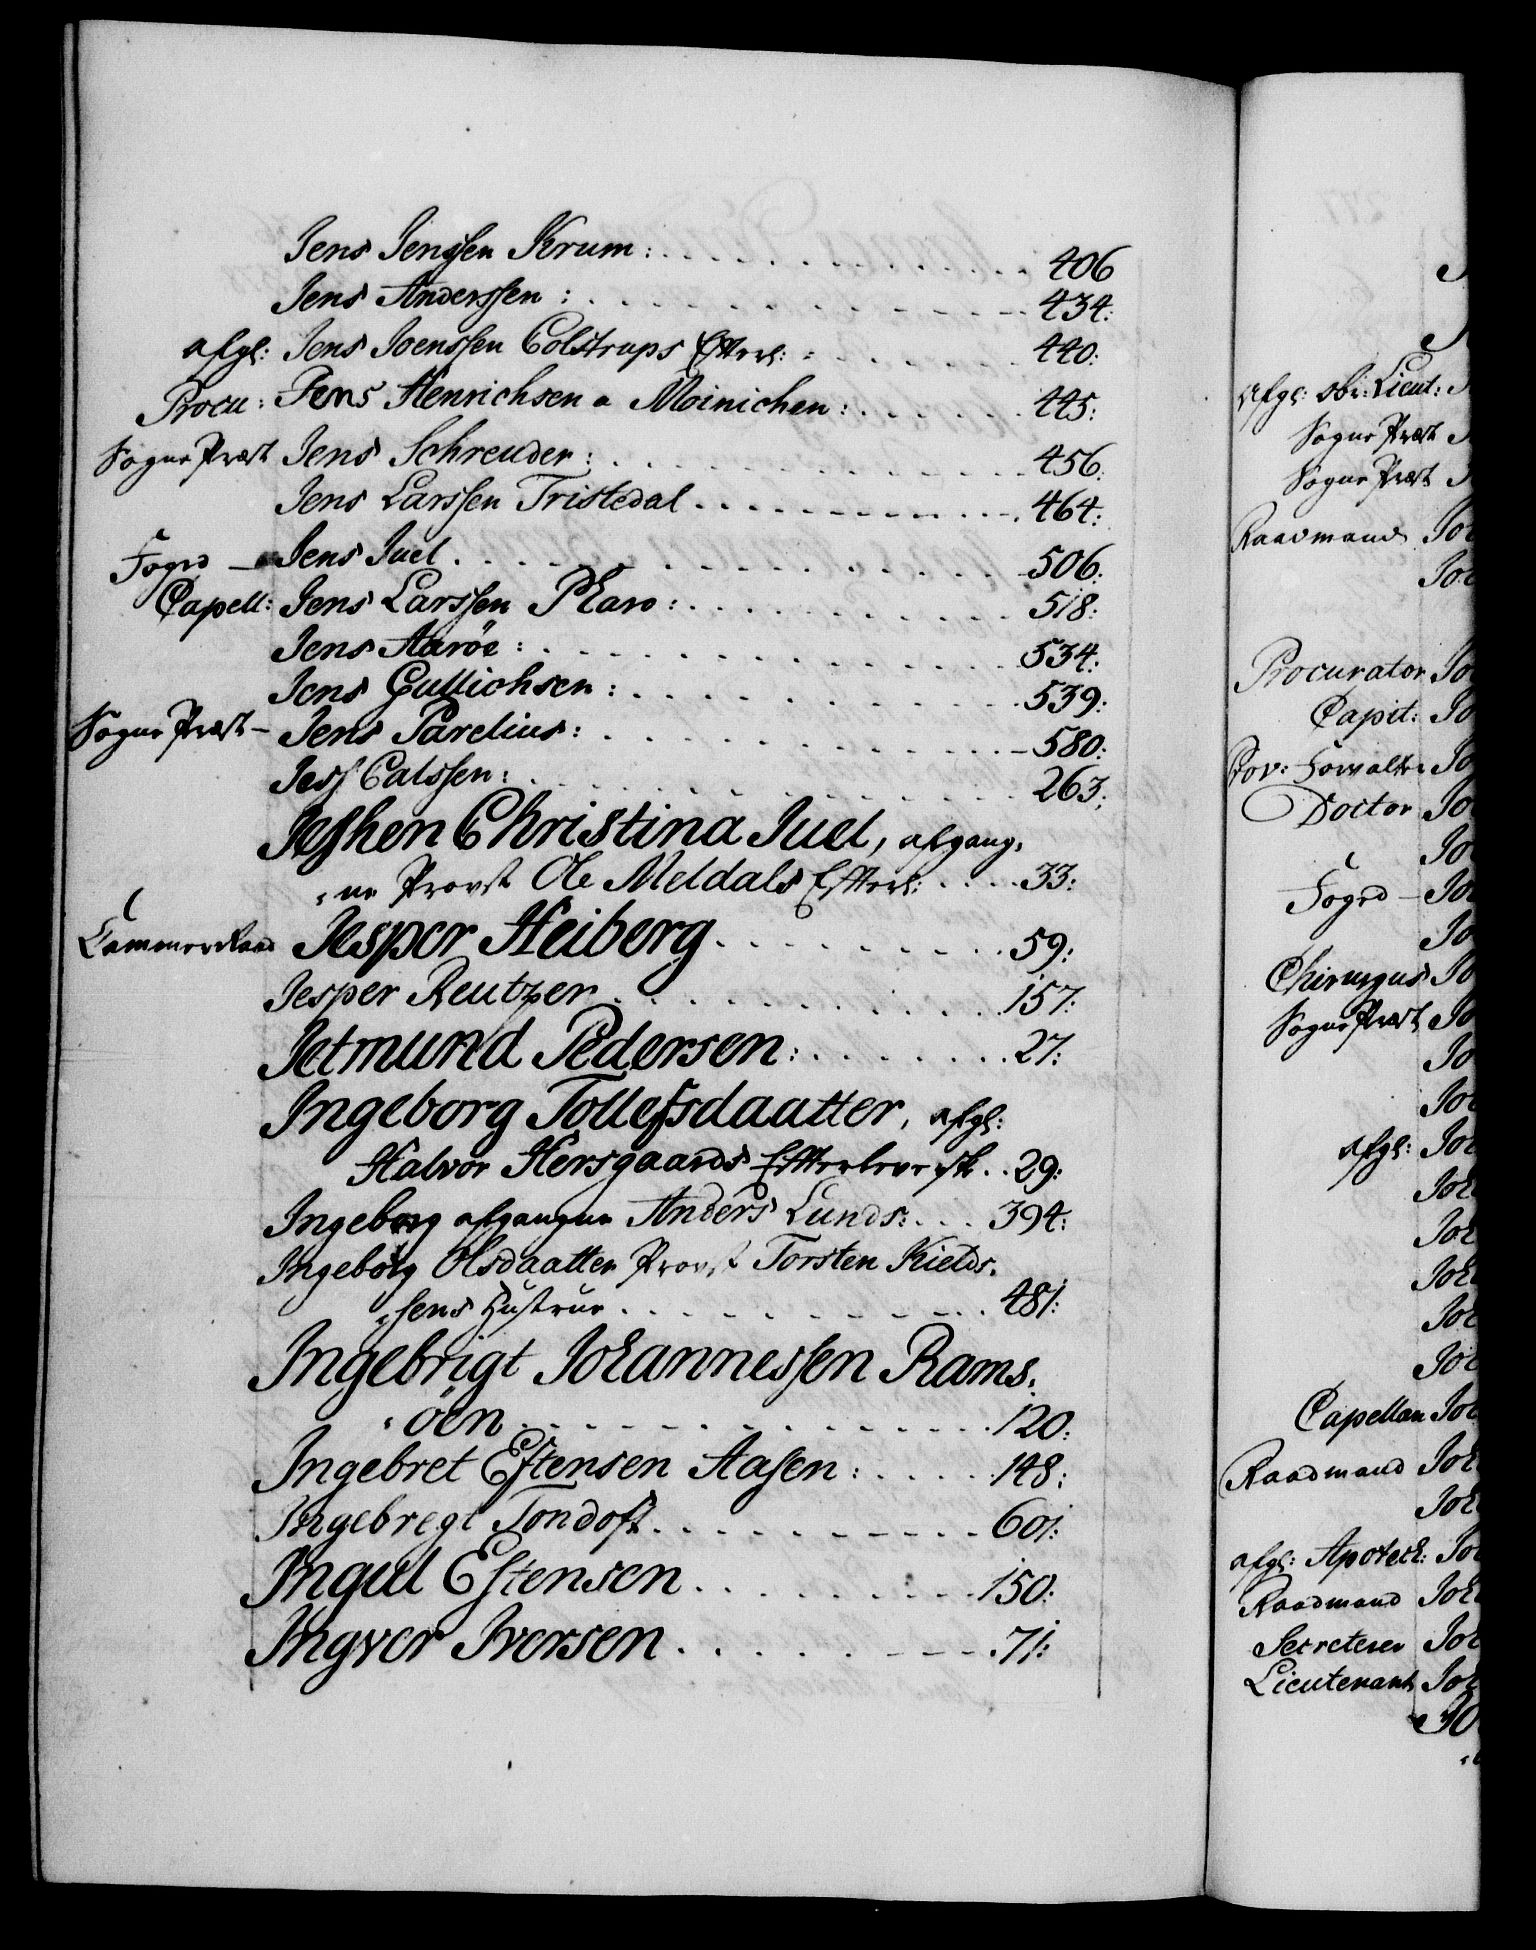 Jens Jenssen Krum: 406
Jens Anderssen: 434:
afgl: Jens Joenssen Colstrups Efterl: 440:
Procu: Jens Henrichsen a Moinichen: 445:
Sogne Præst Jens Schreuder: 456:
Jens Larssen Tristedal 464:
Foged — Jens Juel 506:
Capell: Jens Larssen Pharo: 518:
Jens Aarøe: 534:
Jens Gullichsen: 539:
Sogne Præst — Jens Parelius: 580:
Jess Calssen: 263:
Jeshen Christina Juel, afgang,
ne Provst Ole Meldals Efterl: 33:
Cammerraad Jesper Heiberg 59:
Jesper Reutzer 157:
Jetmund Pedersen: 27:
Ingeborg Tollefsdaatter, afgl:
Halvor Hersgaards Effterleverske 29:
Ingeborg afgangne Anders Lunds: 394:
Ingeborg Olsdaatter Provst Torsten Kields,
sens Hustrue 481:
Ingebrigt Johannessen Rams,
öen 120:
Ingebret Estensen Aasen: 148:
Ingebregt Tondoft 601:
Ingul Estensen 150:
Ingver Iversen 71:
afgl: Lieut:
Sogne Præst
Sogne Præst
Raadmand Jo
Jo
Procurator Jo
Capit: Jo
Prov: Forvalter Jo
Doctor Jo
Jo
Foged — Jo
Jo
Chirurgus Jo
Sogne Præst Jo
Jo
Jo
afgl: Jo
Joh
Joh
Joh
Jo
Jo
Capellan Jo
Raadmand Joh
Joh
afgl: Apoteck: Jo
Raadmand Joh
Secreterer Jo
Lieutenant Jo
Jo